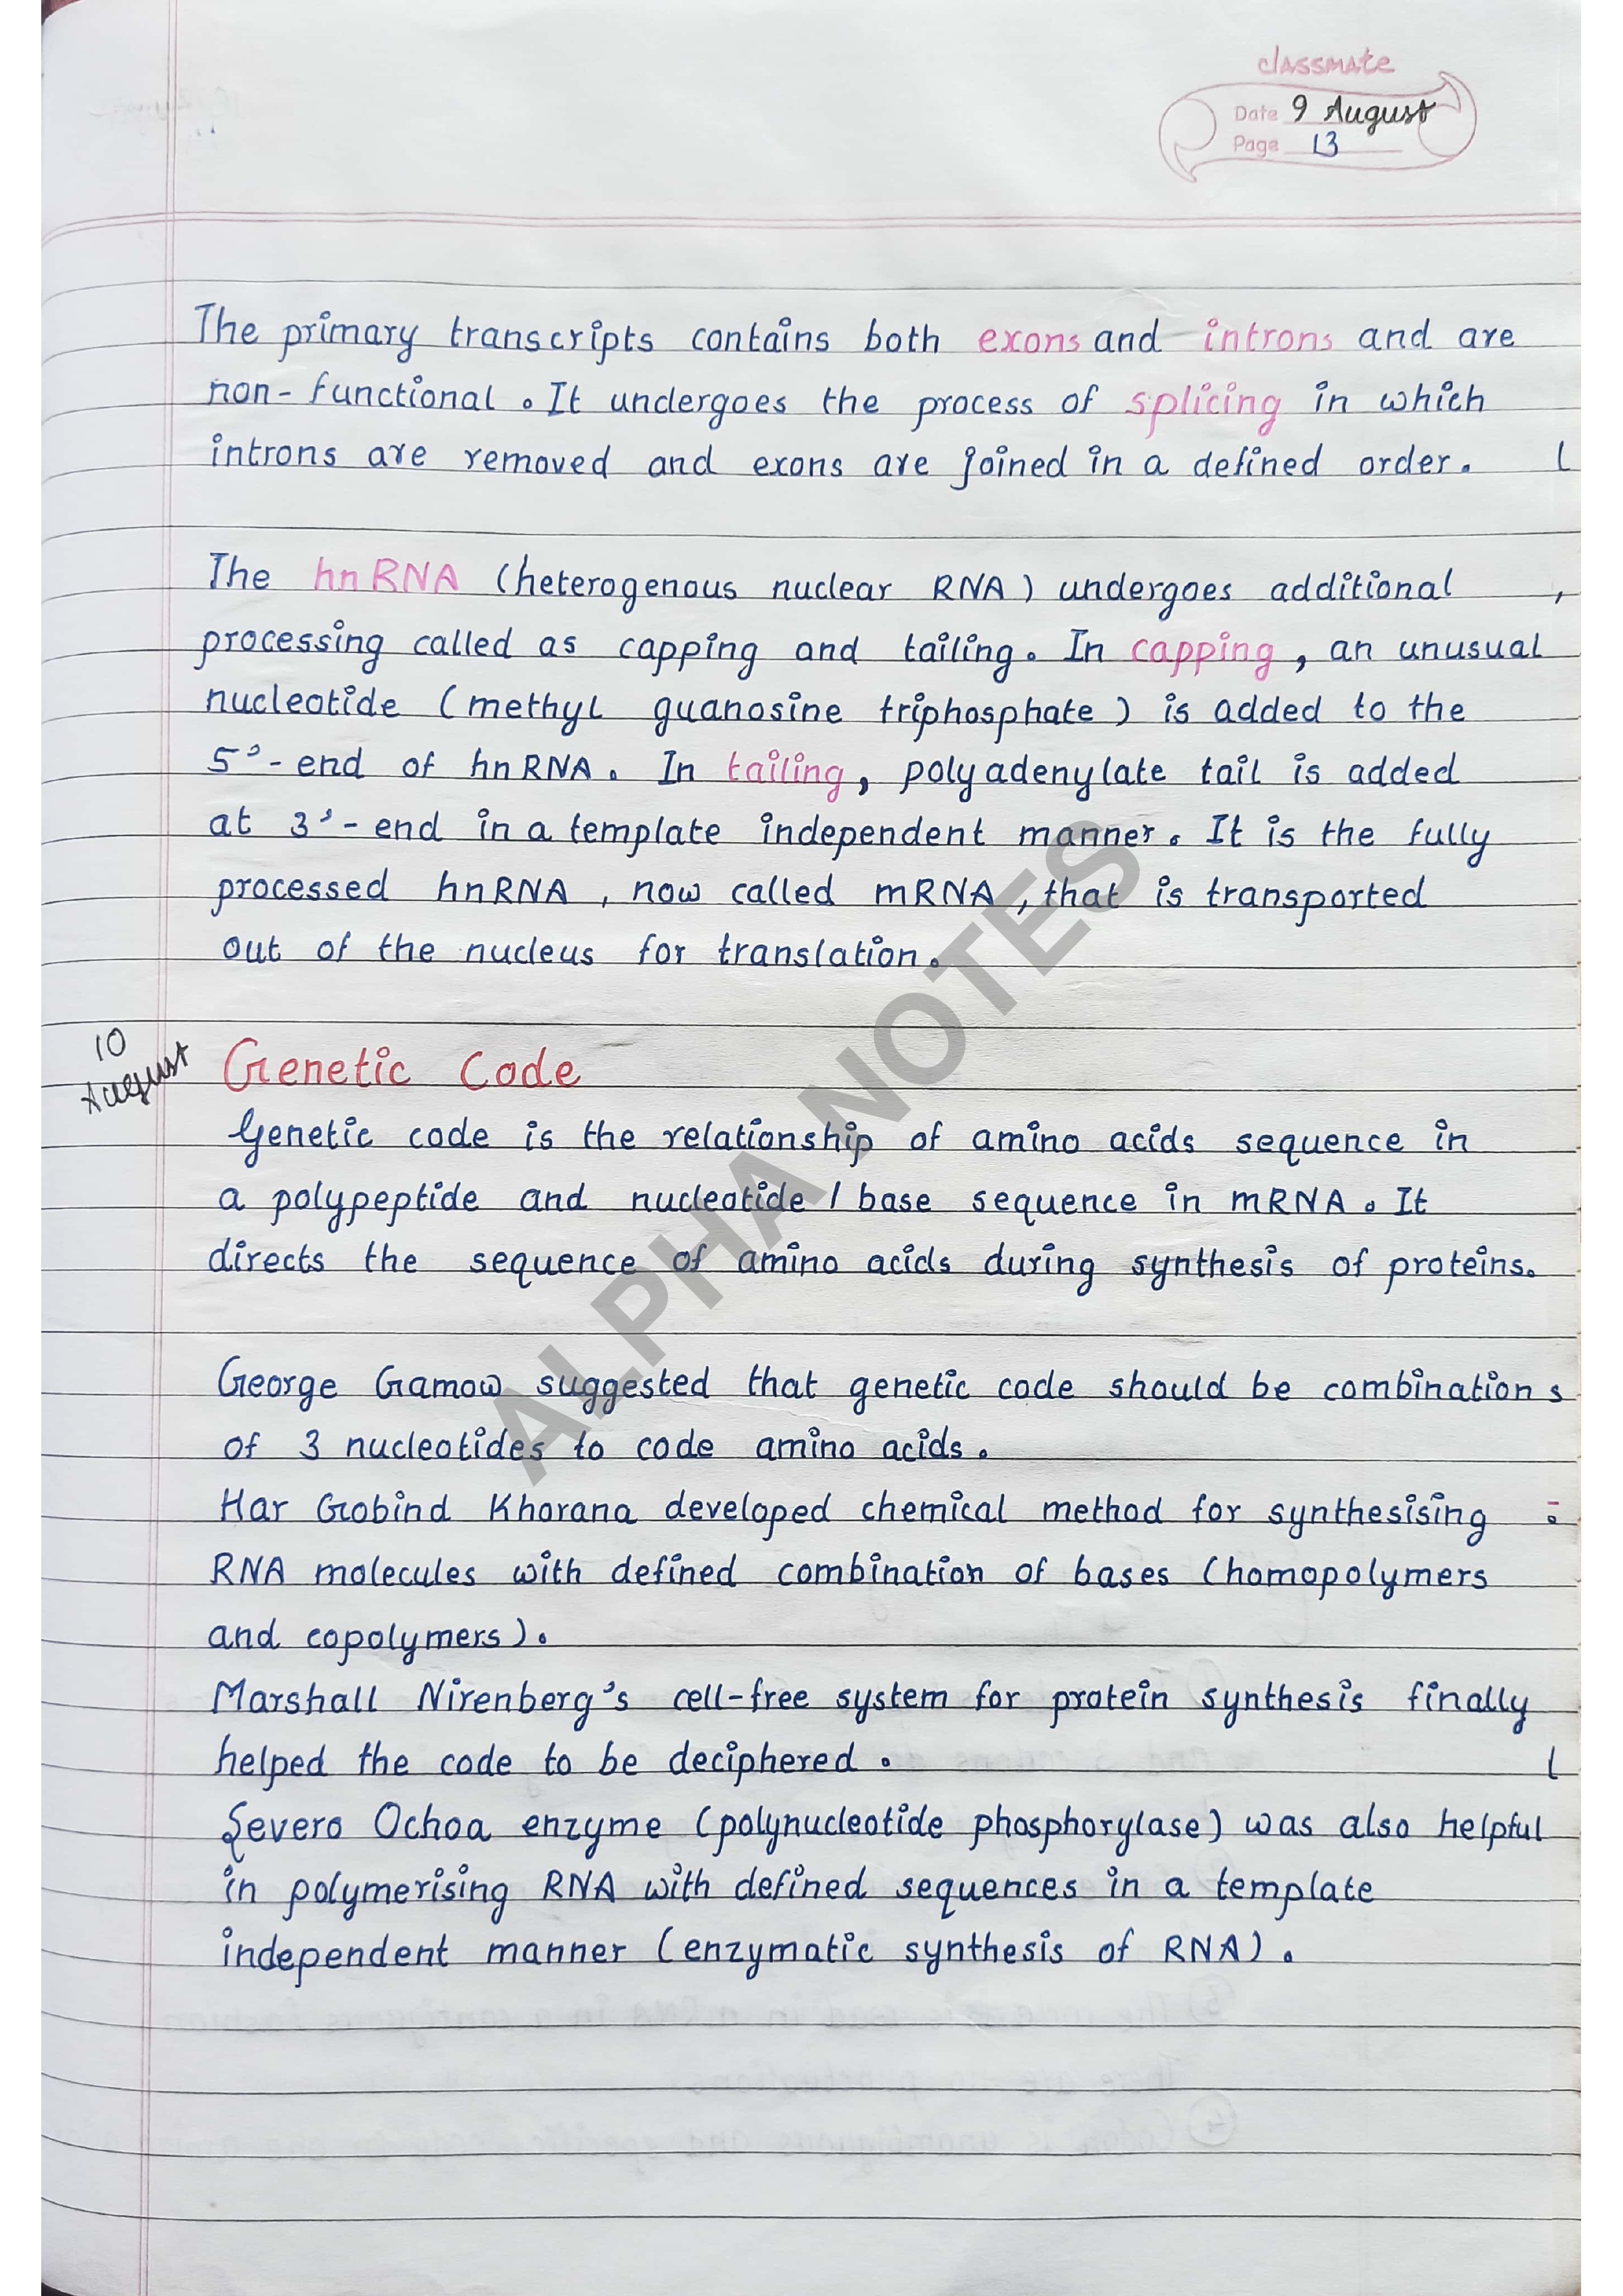 classmate
Date 9 August
Page 13
The primary transcripts contains both exons and introns and are
non-functional. It undergoes the process of splicing in which
introns are removed and exons are joined in a defined order.
The hnRNA (heterogenous nuclear RNA) undergoes additional
processing called as capping and tailing. In capping, an unusual
nucleotide (methyl guanosine triphosphate) is added to the
5'-end of hnRNA. In tailing, polyadenylate tail is added
at 3'-end in a template independent manner. It is the fully
processed hnRNA, now called mRNA, that is transported
out of the nucleus for translation.
10
August
Genetic Code
Genetic code is the relationship of amino acids sequence in
a polypeptide and nucleotide / base sequence in mRNA. It
directs the sequence of amino acids during synthesis of proteins.
George Gamow suggested that genetic code should be combinations
of 3 nucleotides to code amino acids.
Har Gobind Khorana developed chemical method for synthesising
RNA molecules with defined combination of bases (homopolymers
and copolymers).
Marshall Nirenberg's cell-free system for protein synthesis finally
helped the code to be deciphered.
Severo Ochoa enzyme (polynucleotide phosphorylase) was also helpful
in polymerising RNA with defined sequences in a template
independent manner (enzymatic synthesis of RNA).
ALPHA NOTES